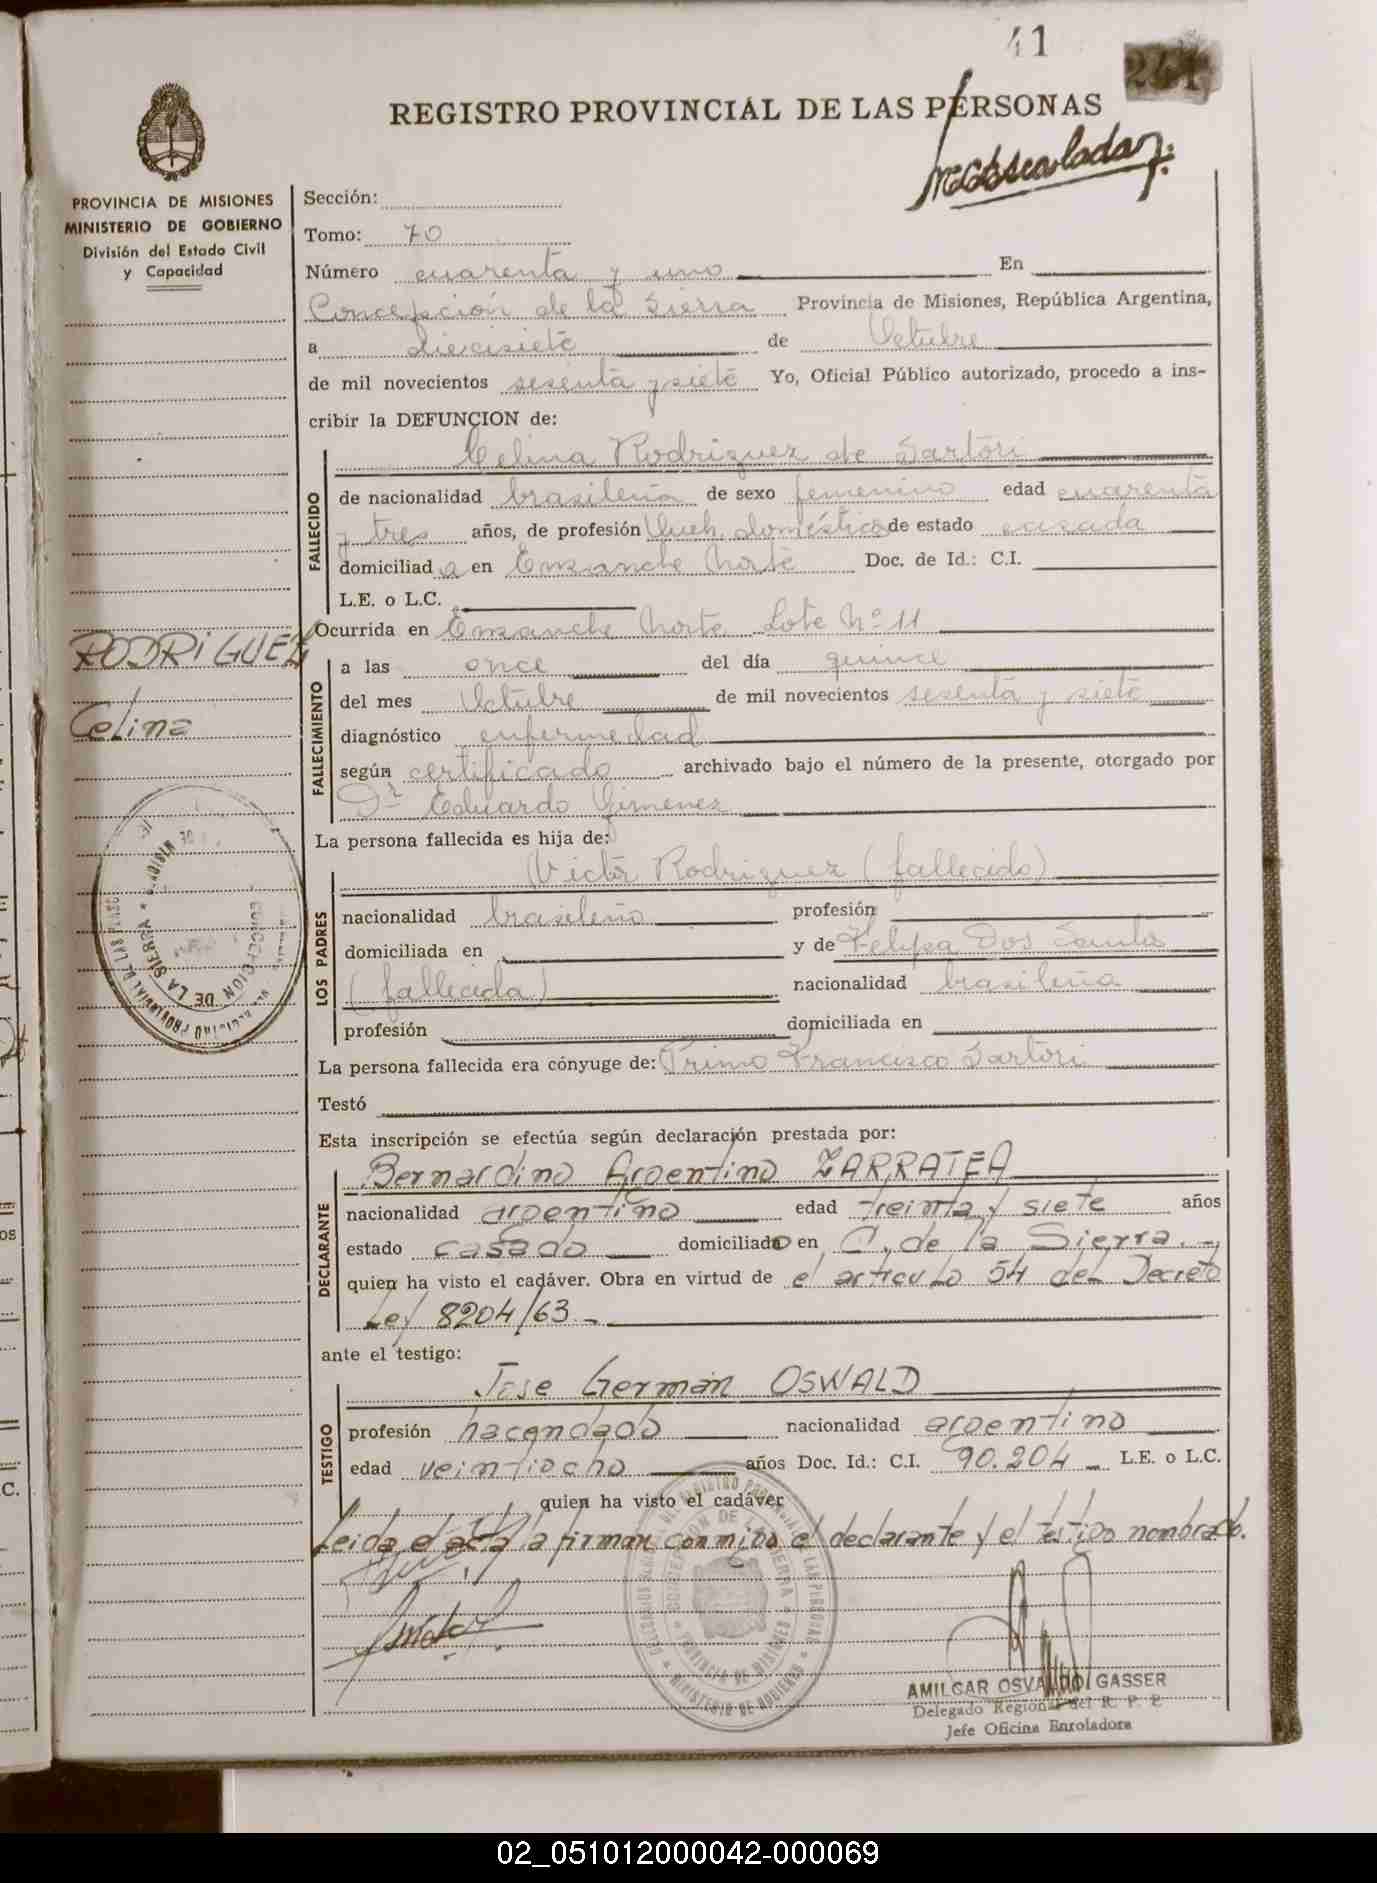 41
241
REGISTRO PROVINCIAL DE LAS PERSONAS
PROVINCIA DE MISIONES
MINISTERIO DE GOBIERNO
División del Estado Civil
y Capacidad
RODRIGUEZ
Celina
Sección:
Tomo: 70
Número cuarenta y uno En
Concepción de la Sierra Provincia de Misiones, República Argentina,
a diecisiete de Octubre
de mil novecientos sesenta y siete Yo, Oficial Público autorizado, procedo a ins-
cribir la DEFUNCION de:
FALLECIDO
Celina Rodriguez de Sartori
de nacionalidad brasileña de sexo femenino edad cuarenta
y tres años, de profesión Queh. domésticos de estado casada
domiciliada en Ensanche Norte Doc. de Id.: C.I.
L.E. o L.C.
Ocurrida en Ensanche Norte Lote Nº 11
FALLECIMIENTO
a las once del día quince
del mes Octubre de mil novecientos sesenta y siete
diagnóstico enfermedad
según certificado archivado bajo el número de la presente, otorgado por
Dr Eduardo Gimenez
La persona fallecida es hija de:
LOS PADRES
Victor Rodriguez (fallecido)
nacionalidad brasileño profesión
domiciliada en y de Felipa Dos Santos
(fallecida) nacionalidad brasileña
profesión domiciliada en
La persona fallecida era cónyuge de: Primo Francisco Sartori
Testó
Esta inscripción se efectúa según declaración prestada por:
DECLARANTE
Bernardino Argentino ZARRATEA
nacionalidad argentino edad treinta y siete años
estado casado domiciliado en C. de la Sierra.-
quien ha visto el cadáver. Obra en virtud de el articulo 54 del Decreto
Ley 8204/63.-
ante el testigo:
TESTIGO
Jose Germán OSWALD
profesión hacendado nacionalidad argentino
edad veintiocho años Doc. Id.: C.I. 90.204 L.E. o L.C.
quien ha visto el cadáver
Leida el acta la firman conmigo el declarante y el testigo nombrado.
CONCEPCION DE LA SIERRA
PROVINCIA DE MISIONES
MINISTERIO DE GOBIERNO
AMILCAR OSVALDO GASSER
Delegado Regional del R. P. P.
Jefe Oficina Enroladora
02_051012000042-000069